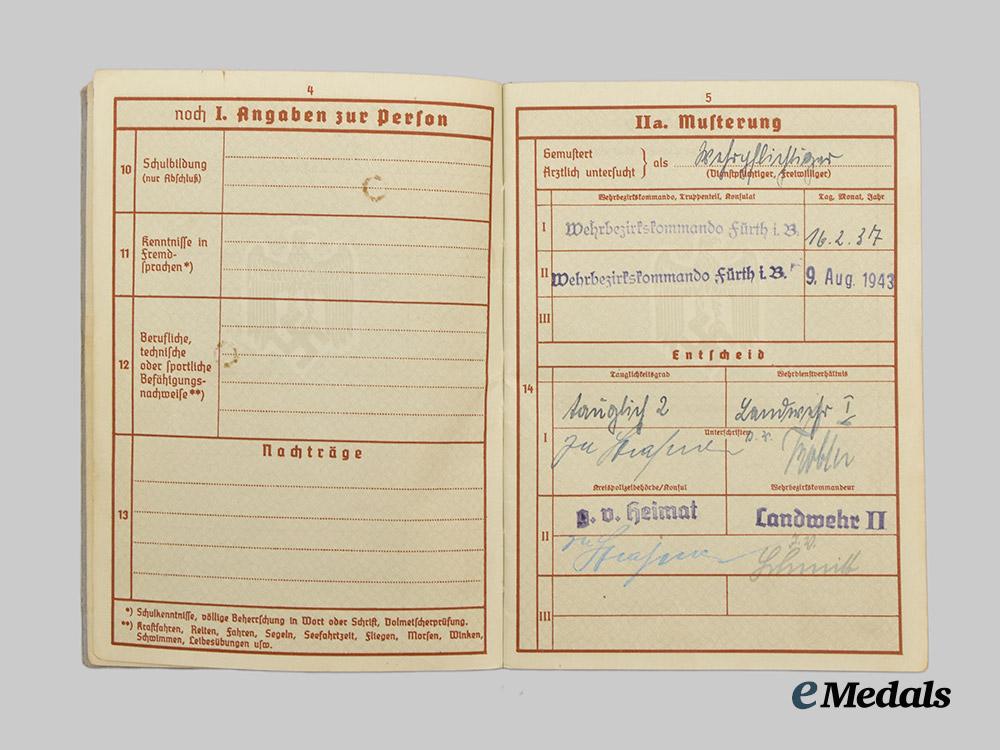 4
noch I. Angaben zur Person
10
Schulbildung
(nur Abschluß)
11
Kenntnisse in
Fremd-
sprachen*)
12
Berufliche,
technische
oder sportliche
Befähigungs-
nachweise**)
Nachträge
13
*) Schulkenntnisse, völlige Beherrschung in Wort oder Schrift, Dolmetscherprüfung.
**) Kraftfahren, Reiten, Fahren, Segeln, Seefahrtzeit, Fliegen, Morsen, Winken,
Schwimmen, Leibesübungen usw.
5
IIa. Musterung
Gemustert
Ärztlich untersucht } als Wehrpflichtiger
(Dienstpflichtiger, Freiwilliger)
Wehrbezirkskommando, Truppenteil, Konsulat Tag, Monat, Jahr
I Wehrbezirkskommando Fürth i. B. 16.2.37
II Wehrbezirkskommando Fürth i. B. 9. Aug. 1943
III
Entscheid
14
Tauglichkeitsgrad Wehrdienstverhältnis
tauglich 2 Landwehr I
I
Unterschriften
Kreispolizeibehörde/Konsul Wehrbezirkskommandeur
II
g. v. Heimat Landwehr II
Schmitt
III
eMedals